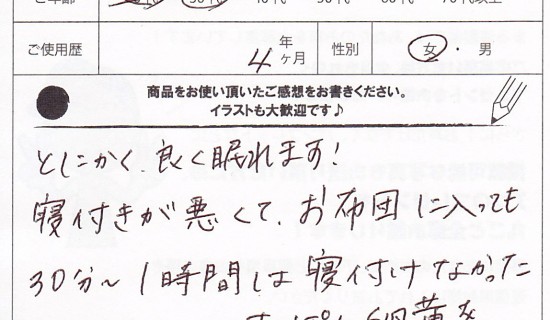 ご使用歴 4 年 ヶ月 性別 女 ・ 男
商品をお使い頂いたご感想をお書きください。
イラストも大歓迎です♪
とにかく良く眠れます!
寝付きが悪くて、お布団に入っても
30分〜1時間は寝付けなかった